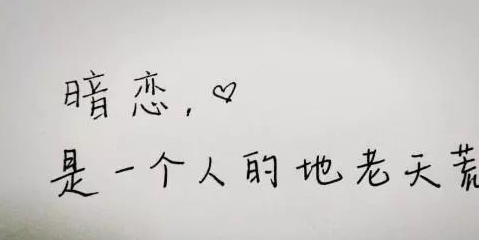 暗恋,♡
是一个人的地老天荒